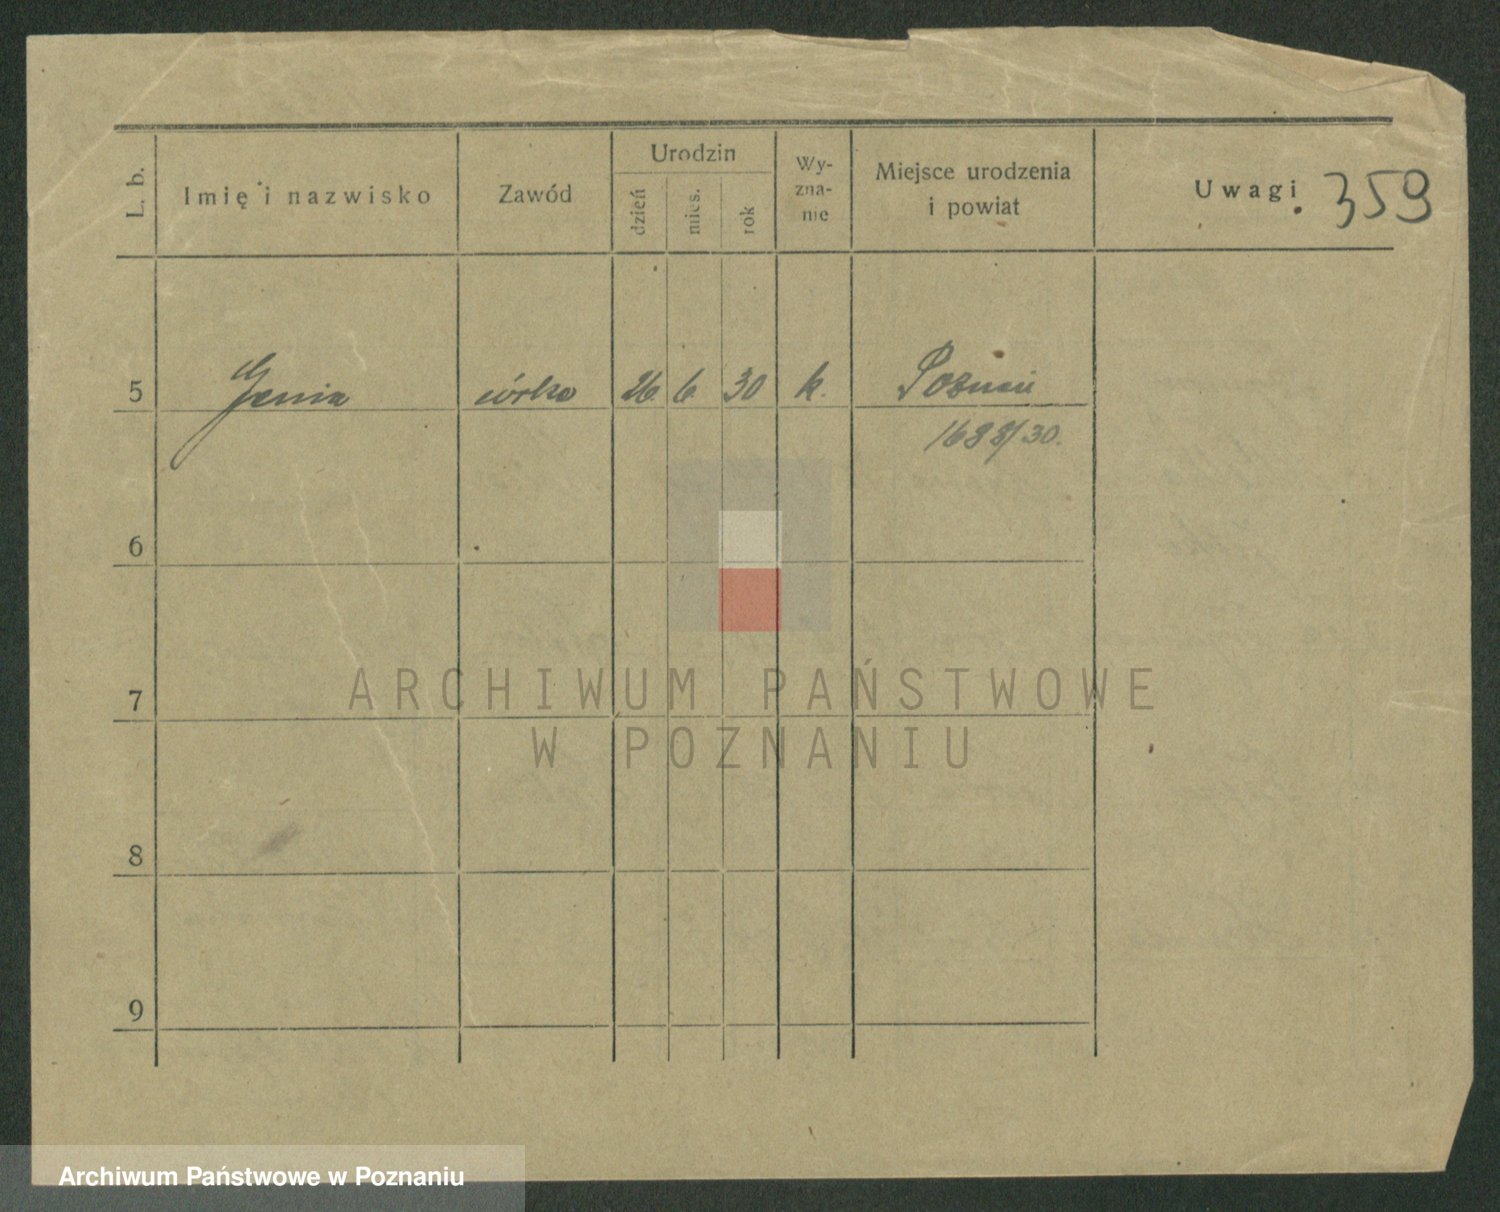 L. b. Imię i nazwisko Zawód Urodzin dzień mies. rok Wy-
zna-
nie Miejsce urodzenia
i powiat Uwagi 359
5 Genia córka 26. 6. 30 k. Poznań
1688/30.
6
7
8
9
ARCHIWUM PAŃSTWOWE
W POZNANIU
Archiwum Państwowe w Poznaniu